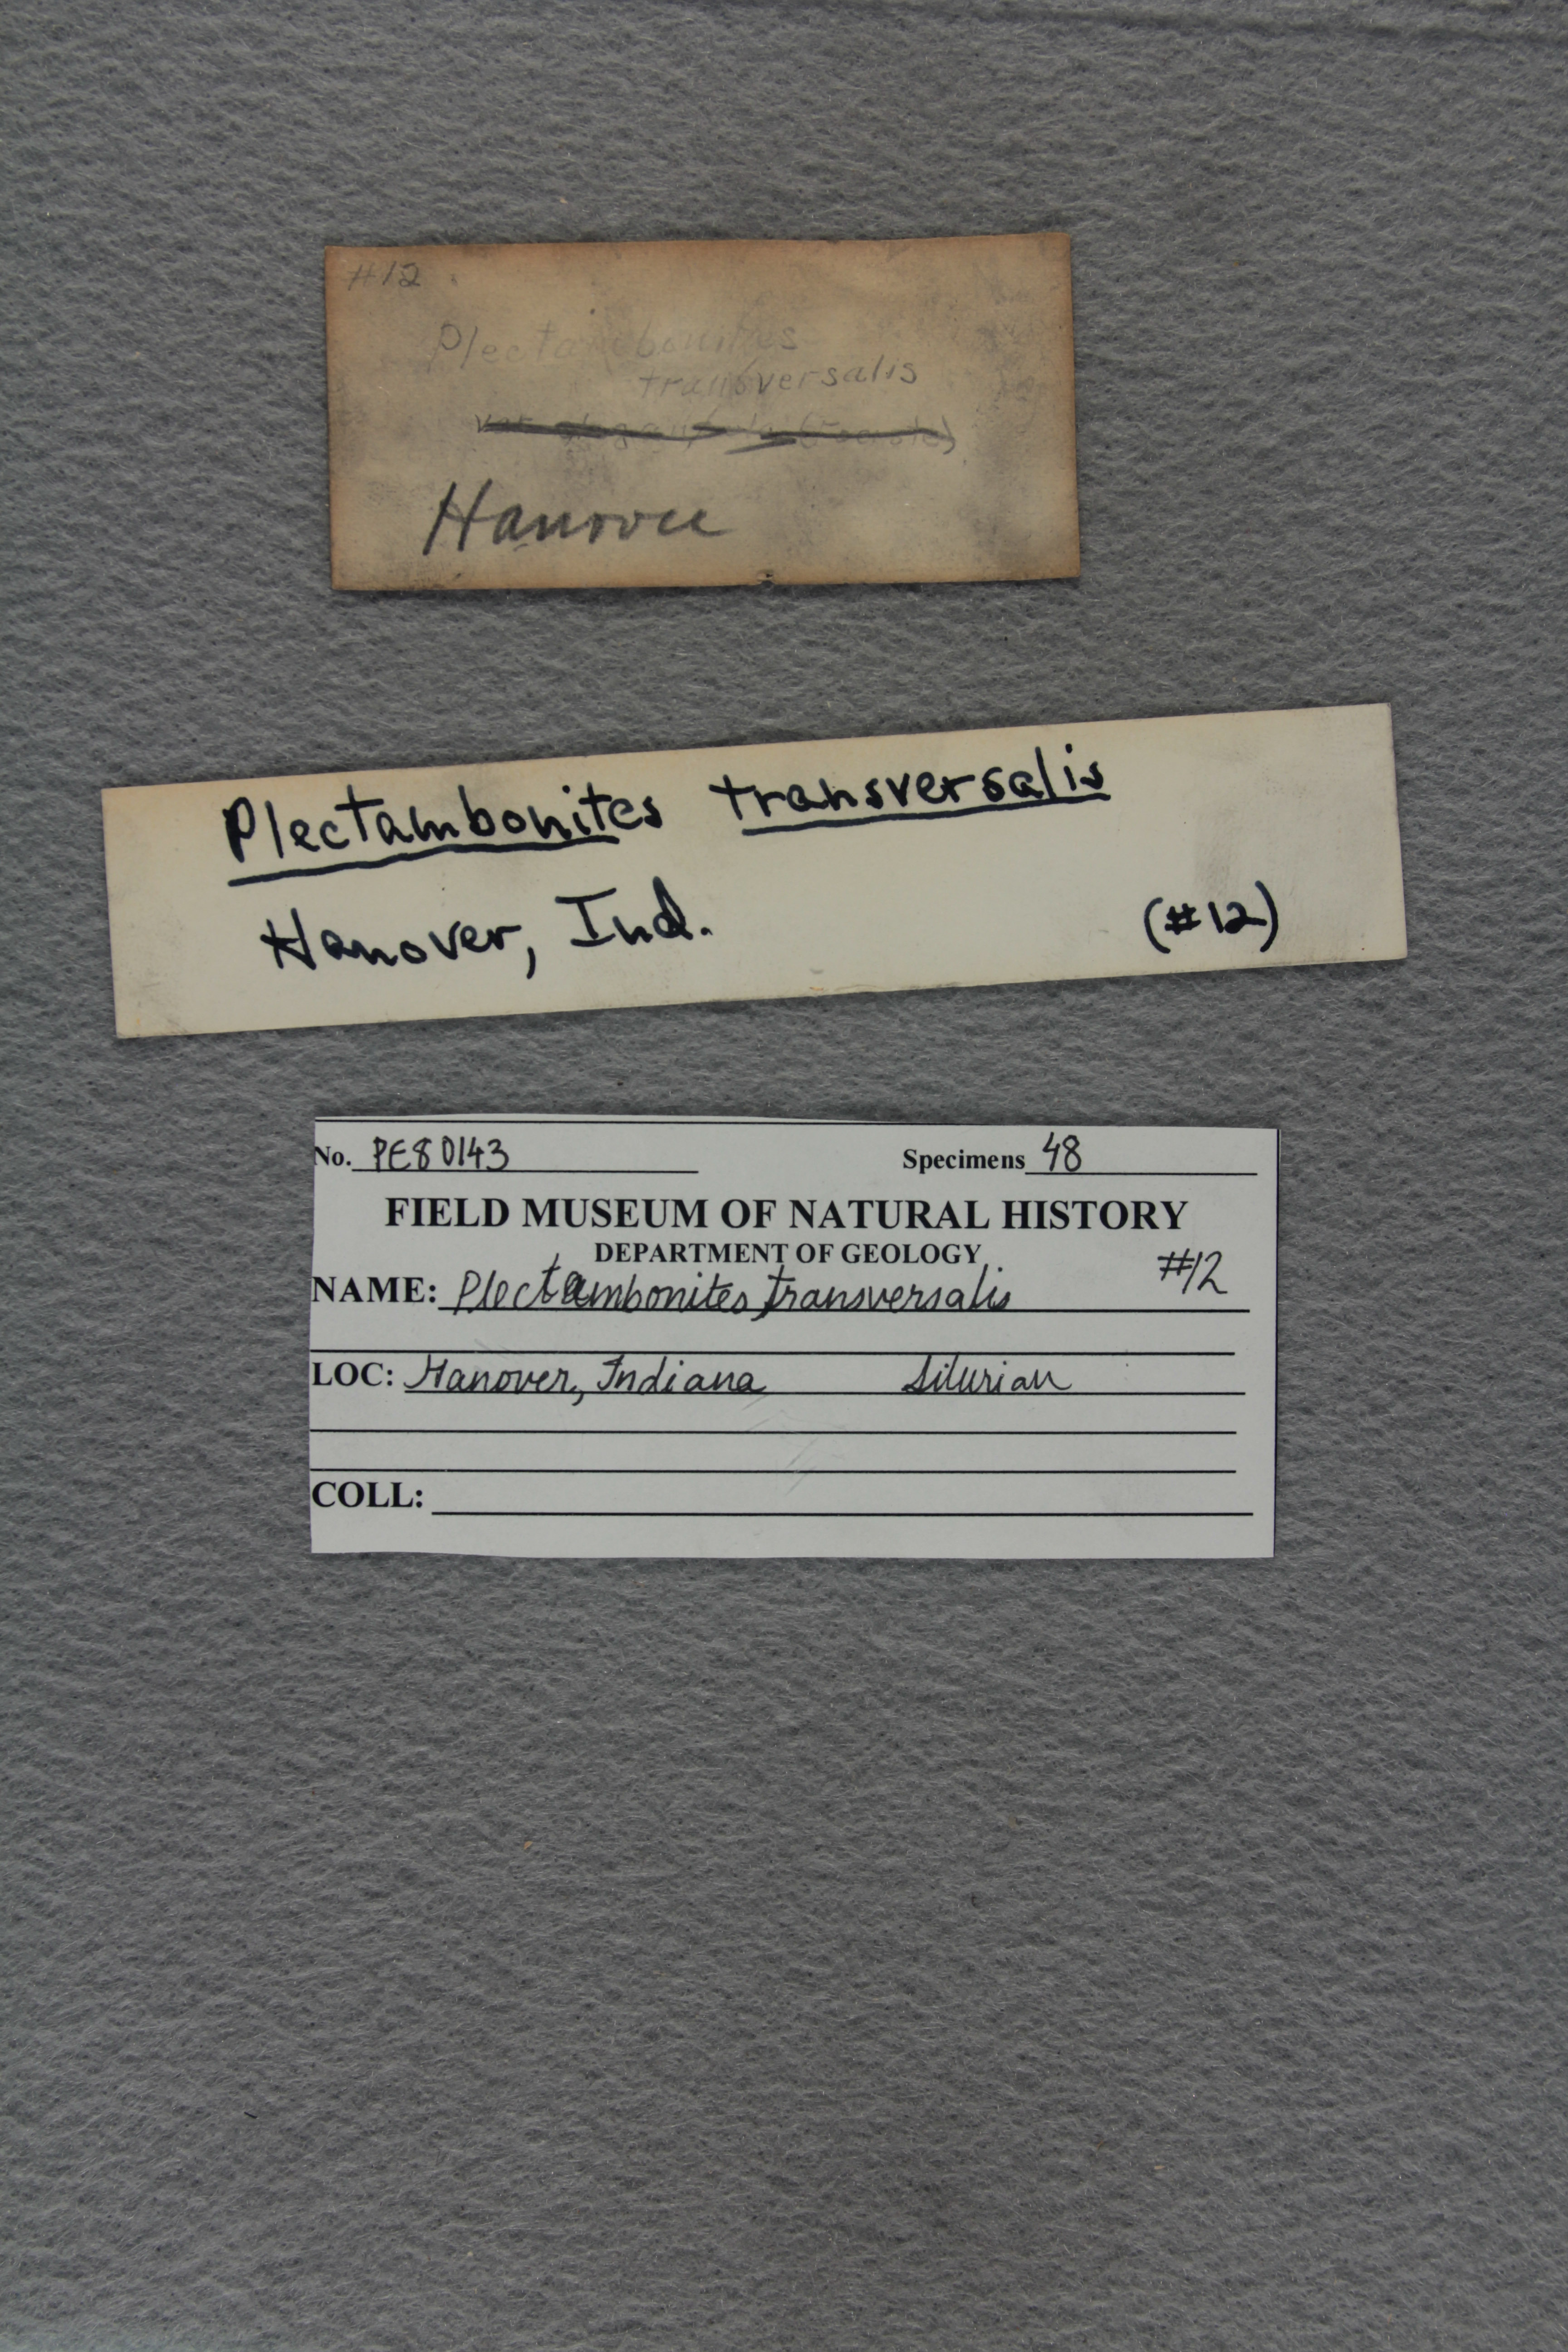 #12
Plectambonites
transversalis
Hanover
Plectambonites transversalis
Hanover, Ind. (#12)
No. PE80143 Specimens 48
FIELD MUSEUM OF NATURAL HISTORY
DEPARTMENT OF GEOLOGY #12
NAME: Plectambonites transversalis
LOC: Hanover, Indiana Silurian
COLL: